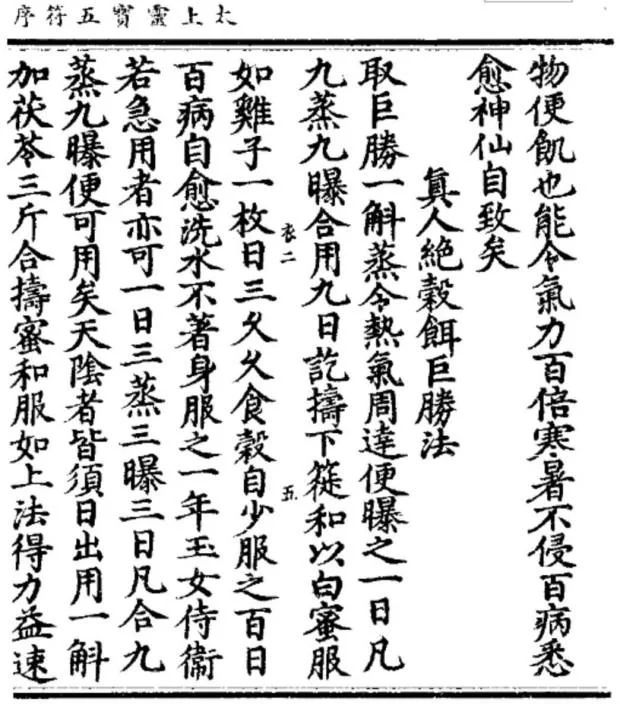 太上靈寶五符序
物便飢也能令氣力百倍寒暑不侵百病悉
愈神仙自致矣
真人絕穀餌巨勝法
取巨勝一斛蒸令熱氣周達便曝之一日凡
九蒸九曝合用九日訖擣下簁和以白蜜服
衣二 五
如雞子一枚日三久久食穀自少服之百日
百病自愈洗水不著身服之一年玉女侍衞
若急用者亦可一日三蒸三曝三日凡合九
蒸九曝便可用矣天陰者皆須日出用一斛
加茯苓三斤合擣蜜和服如上法得力益速